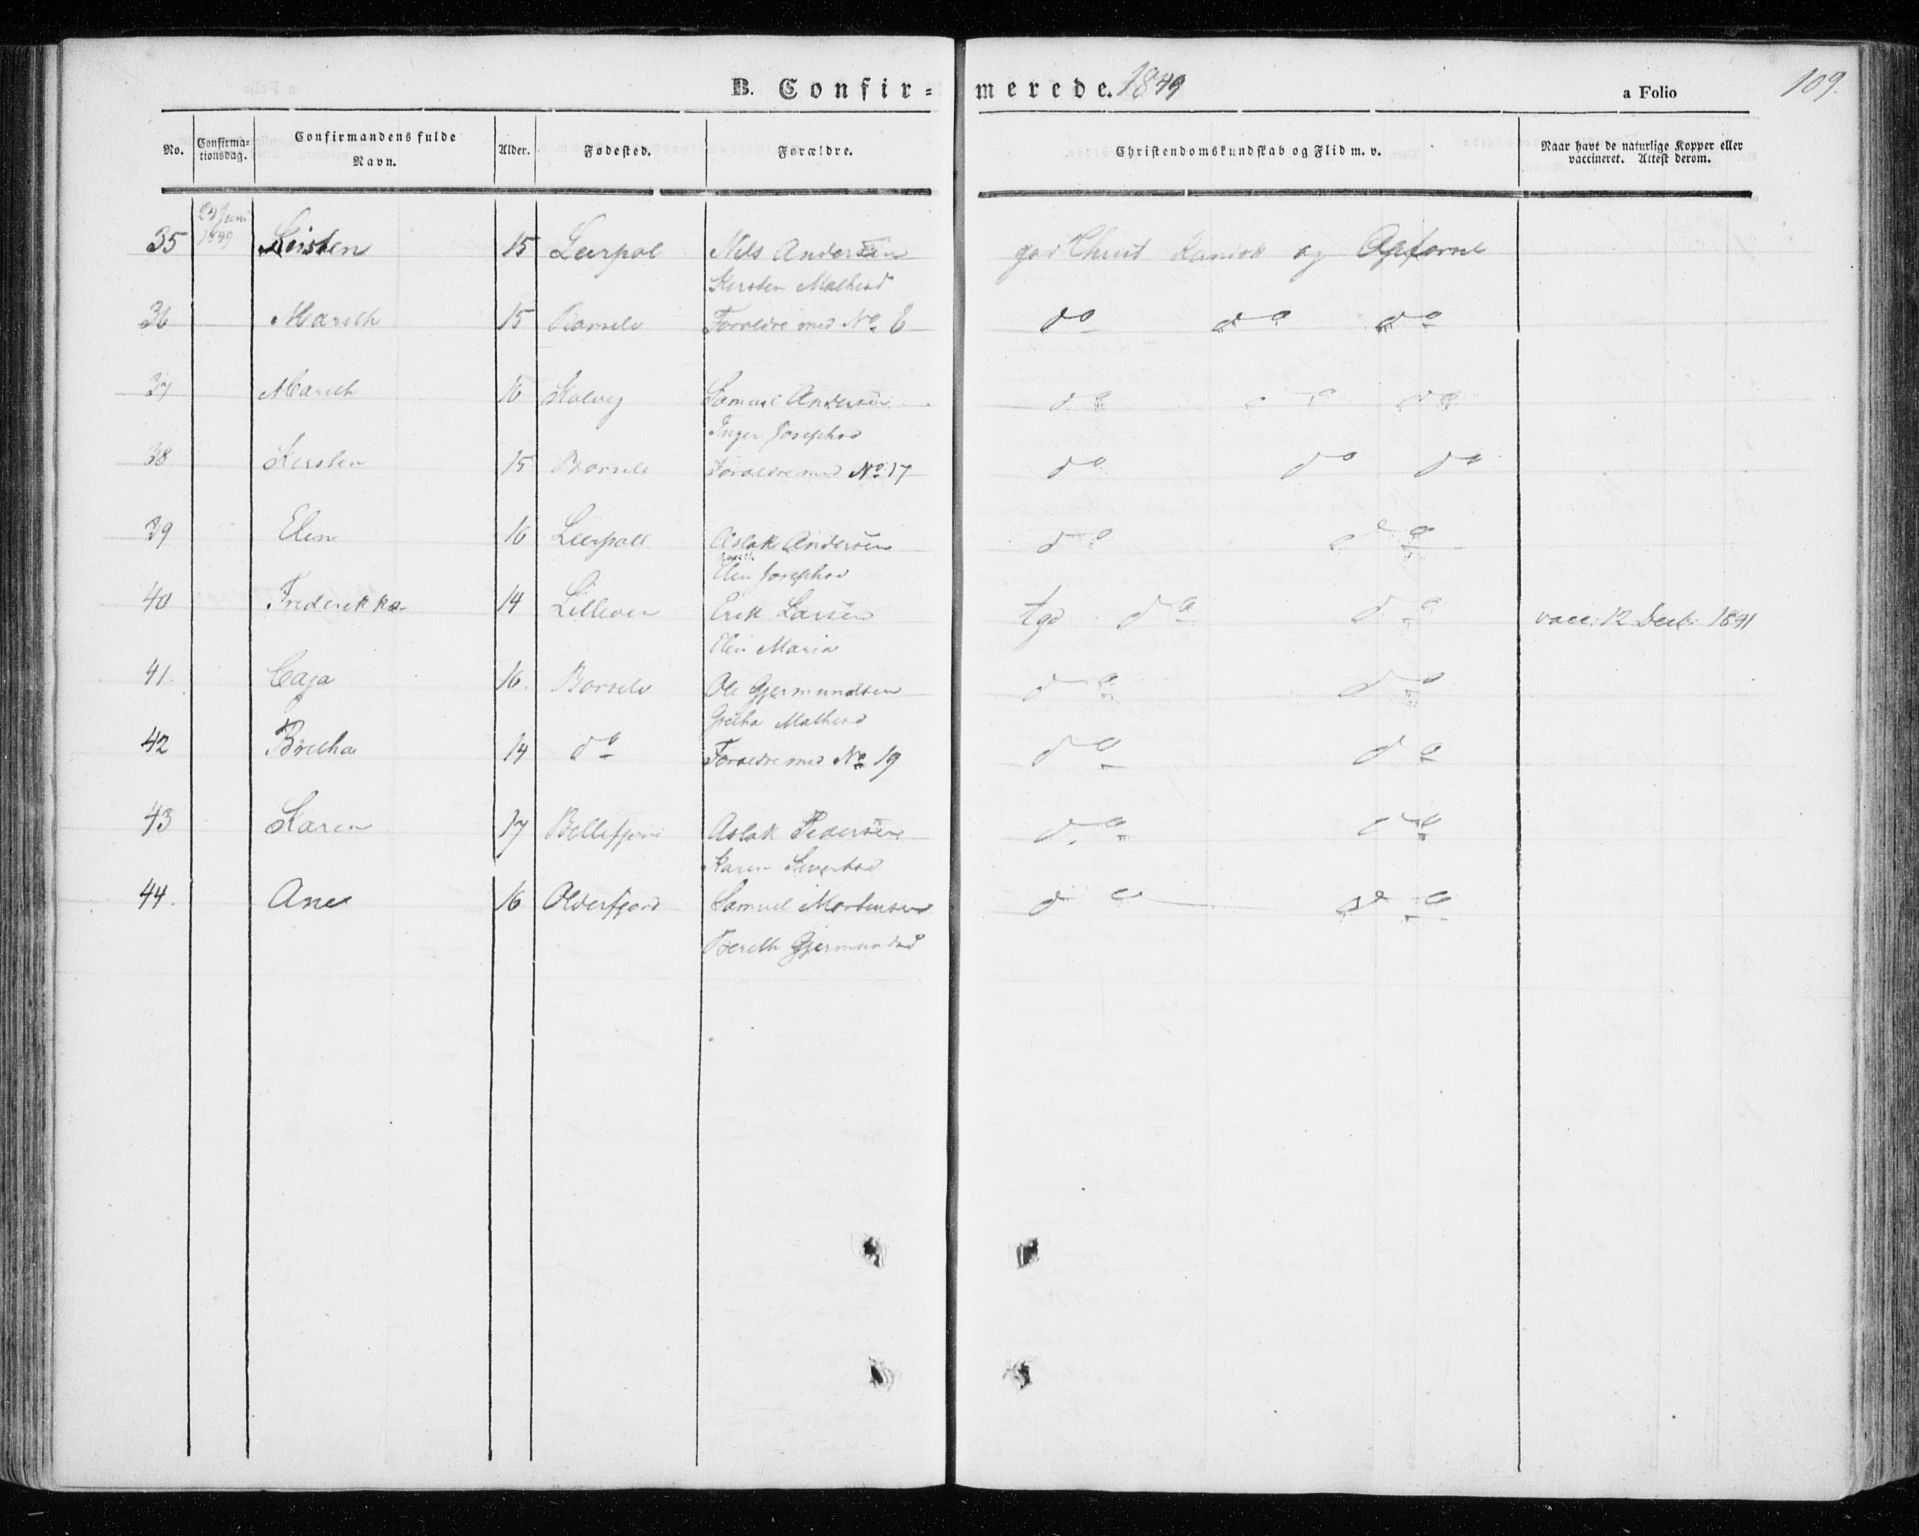 B. Confir- merede. 1849
a Folio 109.
No. Confirma-tionsdag. Confirmandens fulde Navn. Alder. Fødested. Forældre. Christendomskundskab og Flid m. v. Naar havt de naturlige Kopper eller vaccineret. Attest derom.
24 Juni 1849
35 Kirsten 15 Leerpol Nils Andersen god Christ Kundsk og Opførsel
Kirsten Mathisd
36 Marith 15 Borselv Forældre med No 6 do do do
37 Marith 16 Kolvig Samuel Andersen do do do
Inger Josephsd
38 Kirsten 15 Borselv Forældre med No 17 do do do
39 Elen 16 Leerpoll Aslak Andersen do do
Elen Josephsd
40 Frederikka 14 Lilleven Erik Larsen tgd do do vacc: 12 Decb: 1841
Elen Maria
41. Caja 16. Borselv Ole Gjermundsen do do
Gretha Mathisd
42 Britha 14 do Forældre med No 19 do do
43 Karen 17 Billefjord Aslak Pedersen do do
Karen Sivertsd
44. Ane 16 Olderfjord Samuel Mortensen do do
Berith Gjermundsd